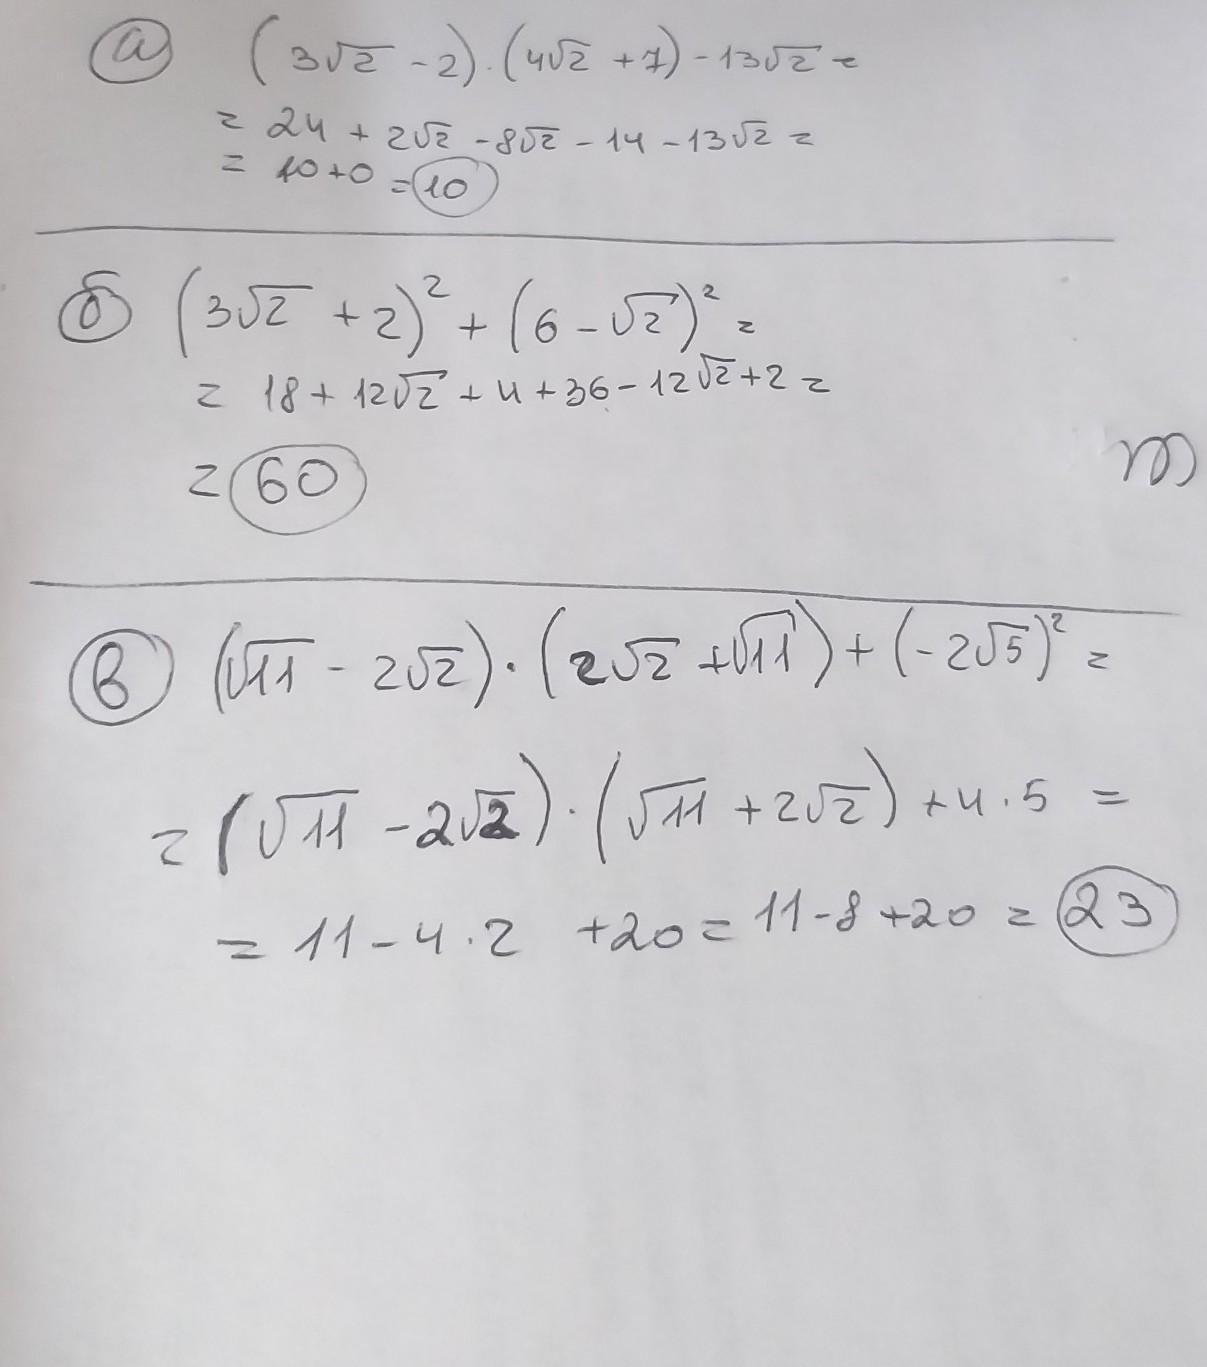 а) (3√2 - 2) · (4√2 + 7) - 13√2 =
= 24 + 2√2 - 8√2 - 14 - 13√2 =
= 10 + 0 = 10
б) (3√2 + 2)² + (6 - √2)² =
= 18 + 12√2 + 4 + 36 - 12√2 + 2 =
= 60
в) (√11 - 2√2) · (2√2 + √11) + (-2√5)² =
= (√11 - 2√2) · (√11 + 2√2) + 4 · 5 =
= 11 - 4 · 2 + 20 = 11 - 8 + 20 = 23